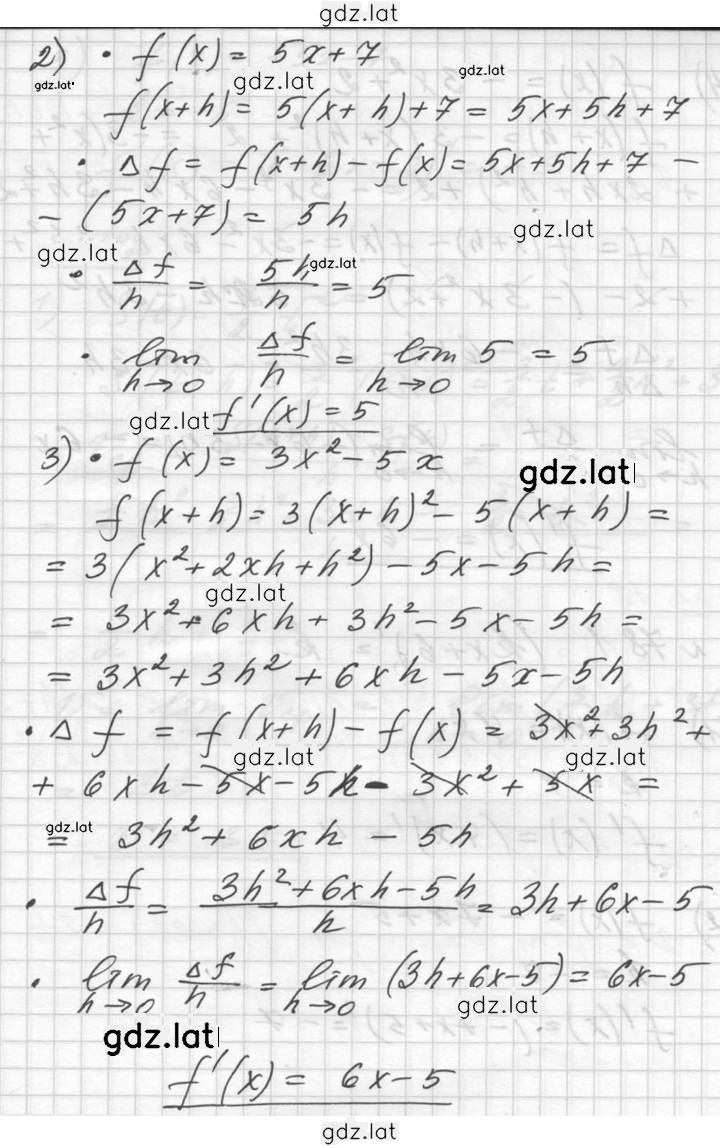 gdz.lat
2) • f(x) = 5x+7
gdz.lat gdz.lat gdz.lat
f(x+h) = 5(x+h)+7 = 5x+5h+7
• Δf = f(x+h) − f(x) = 5x+5h+7 −
− (5x+7) = 5h gdz.lat
gdz.lat gdz.lat
• Δf/h = 5h/h = 5
• lim h→0 Δf/h = lim h→0 5 = 5
gdz.lat f'(x) = 5
3) • f(x) = 3x² − 5x
gdz.lat
f(x+h) = 3(x+h)² − 5(x+h) =
= 3(x²+2xh+h²) − 5x − 5h =
gdz.lat
= 3x² + 6xh + 3h² − 5x − 5h =
= 3x² + 3h² + 6xh − 5x − 5h
• Δf = f(x+h) − f(x) = 3x² + 3h² +
gdz.lat gdz.lat
+ 6xh − 5x − 5h − 3x² + 5x =
gdz.lat
= 3h² + 6xh − 5h
• Δf/h = 3h² + 6xh − 5h/h = 3h + 6x − 5
• lim h→0 Δf/h = lim h→0 (3h+6x−5) = 6x−5
gdz.lat gdz.lat
f'(x) = 6x−5
gdz.lat